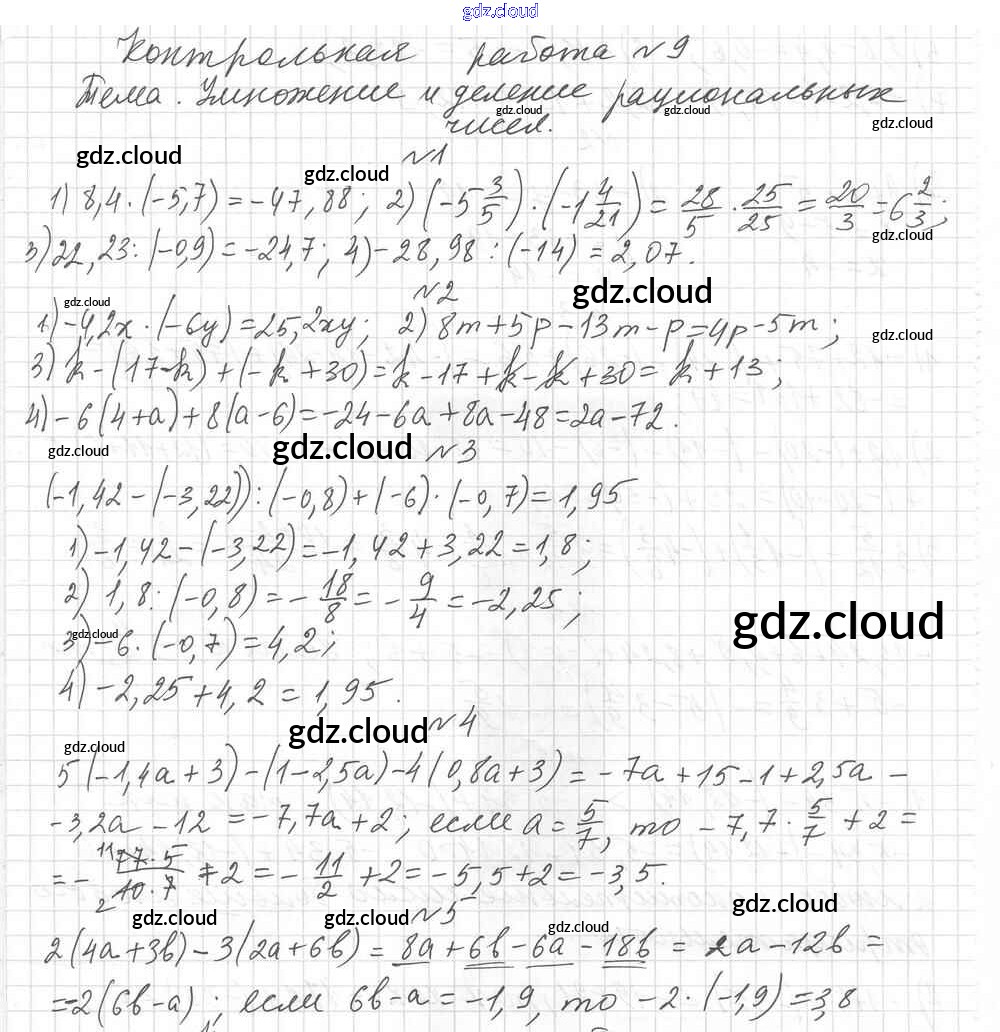 gdz.cloud
Контрольная работа №9
Тема. Умножение и деление рациональных
gdz.cloud gdz.cloud
чисел.
gdz.cloud
№1
gdz.cloud
gdz.cloud
1) 8,4·(-5,7) = -47,88; 2) (-5 3/5)·(-1 4/21) = 28/5 · 25/25 = 20/3 = 6 2/3;
gdz.cloud
3) 22,23:(-0,9) = -24,7; 4) -28,98:(-14) = 2,07.
№2
gdz.cloud
gdz.cloud
1) -4,2x·(-6y) = 25,2xy; 2) 8m+5p-13m-p=4p-5m;
gdz.cloud
3) k-(17-k)+(-k+30)=k-17+k-k+30=k+13;
4) -6(4+a)+8(a-6)=-24-6a+8a-48=2a-72.
gdz.cloud
gdz.cloud
№3
(-1,42-(-3,22)):(-0,8)+(-6)·(-0,7)=1,95
1) -1,42-(-3,22)=-1,42+3,22=1,8;
2) 1,8:(-0,8)=-18/8=-9/4=-2,25;
gdz.cloud
gdz.cloud
3) -6·(-0,7)=4,2;
4) -2,25+4,2=1,95.
№4
gdz.cloud
gdz.cloud
5(-1,4a+3)-(1-2,5a)-4(0,8a+3)=-7a+15-1+2,5a-
-3,2a-12=-7,7a+2; если a=5/7, то -7,7·5/7+2=
=-77·5/10·7+2=-11/2+2=-5,5+2=-3,5.
11
2
gdz.cloud
gdz.cloud
№5
gdz.cloud
gdz.cloud
2(4a+3b)-3(2a+6b)=8a+6b-6a-18b=2a-12b=
=-2(6b-a); если 6b-a=-1,9, то -2·(-1,9)=3,8